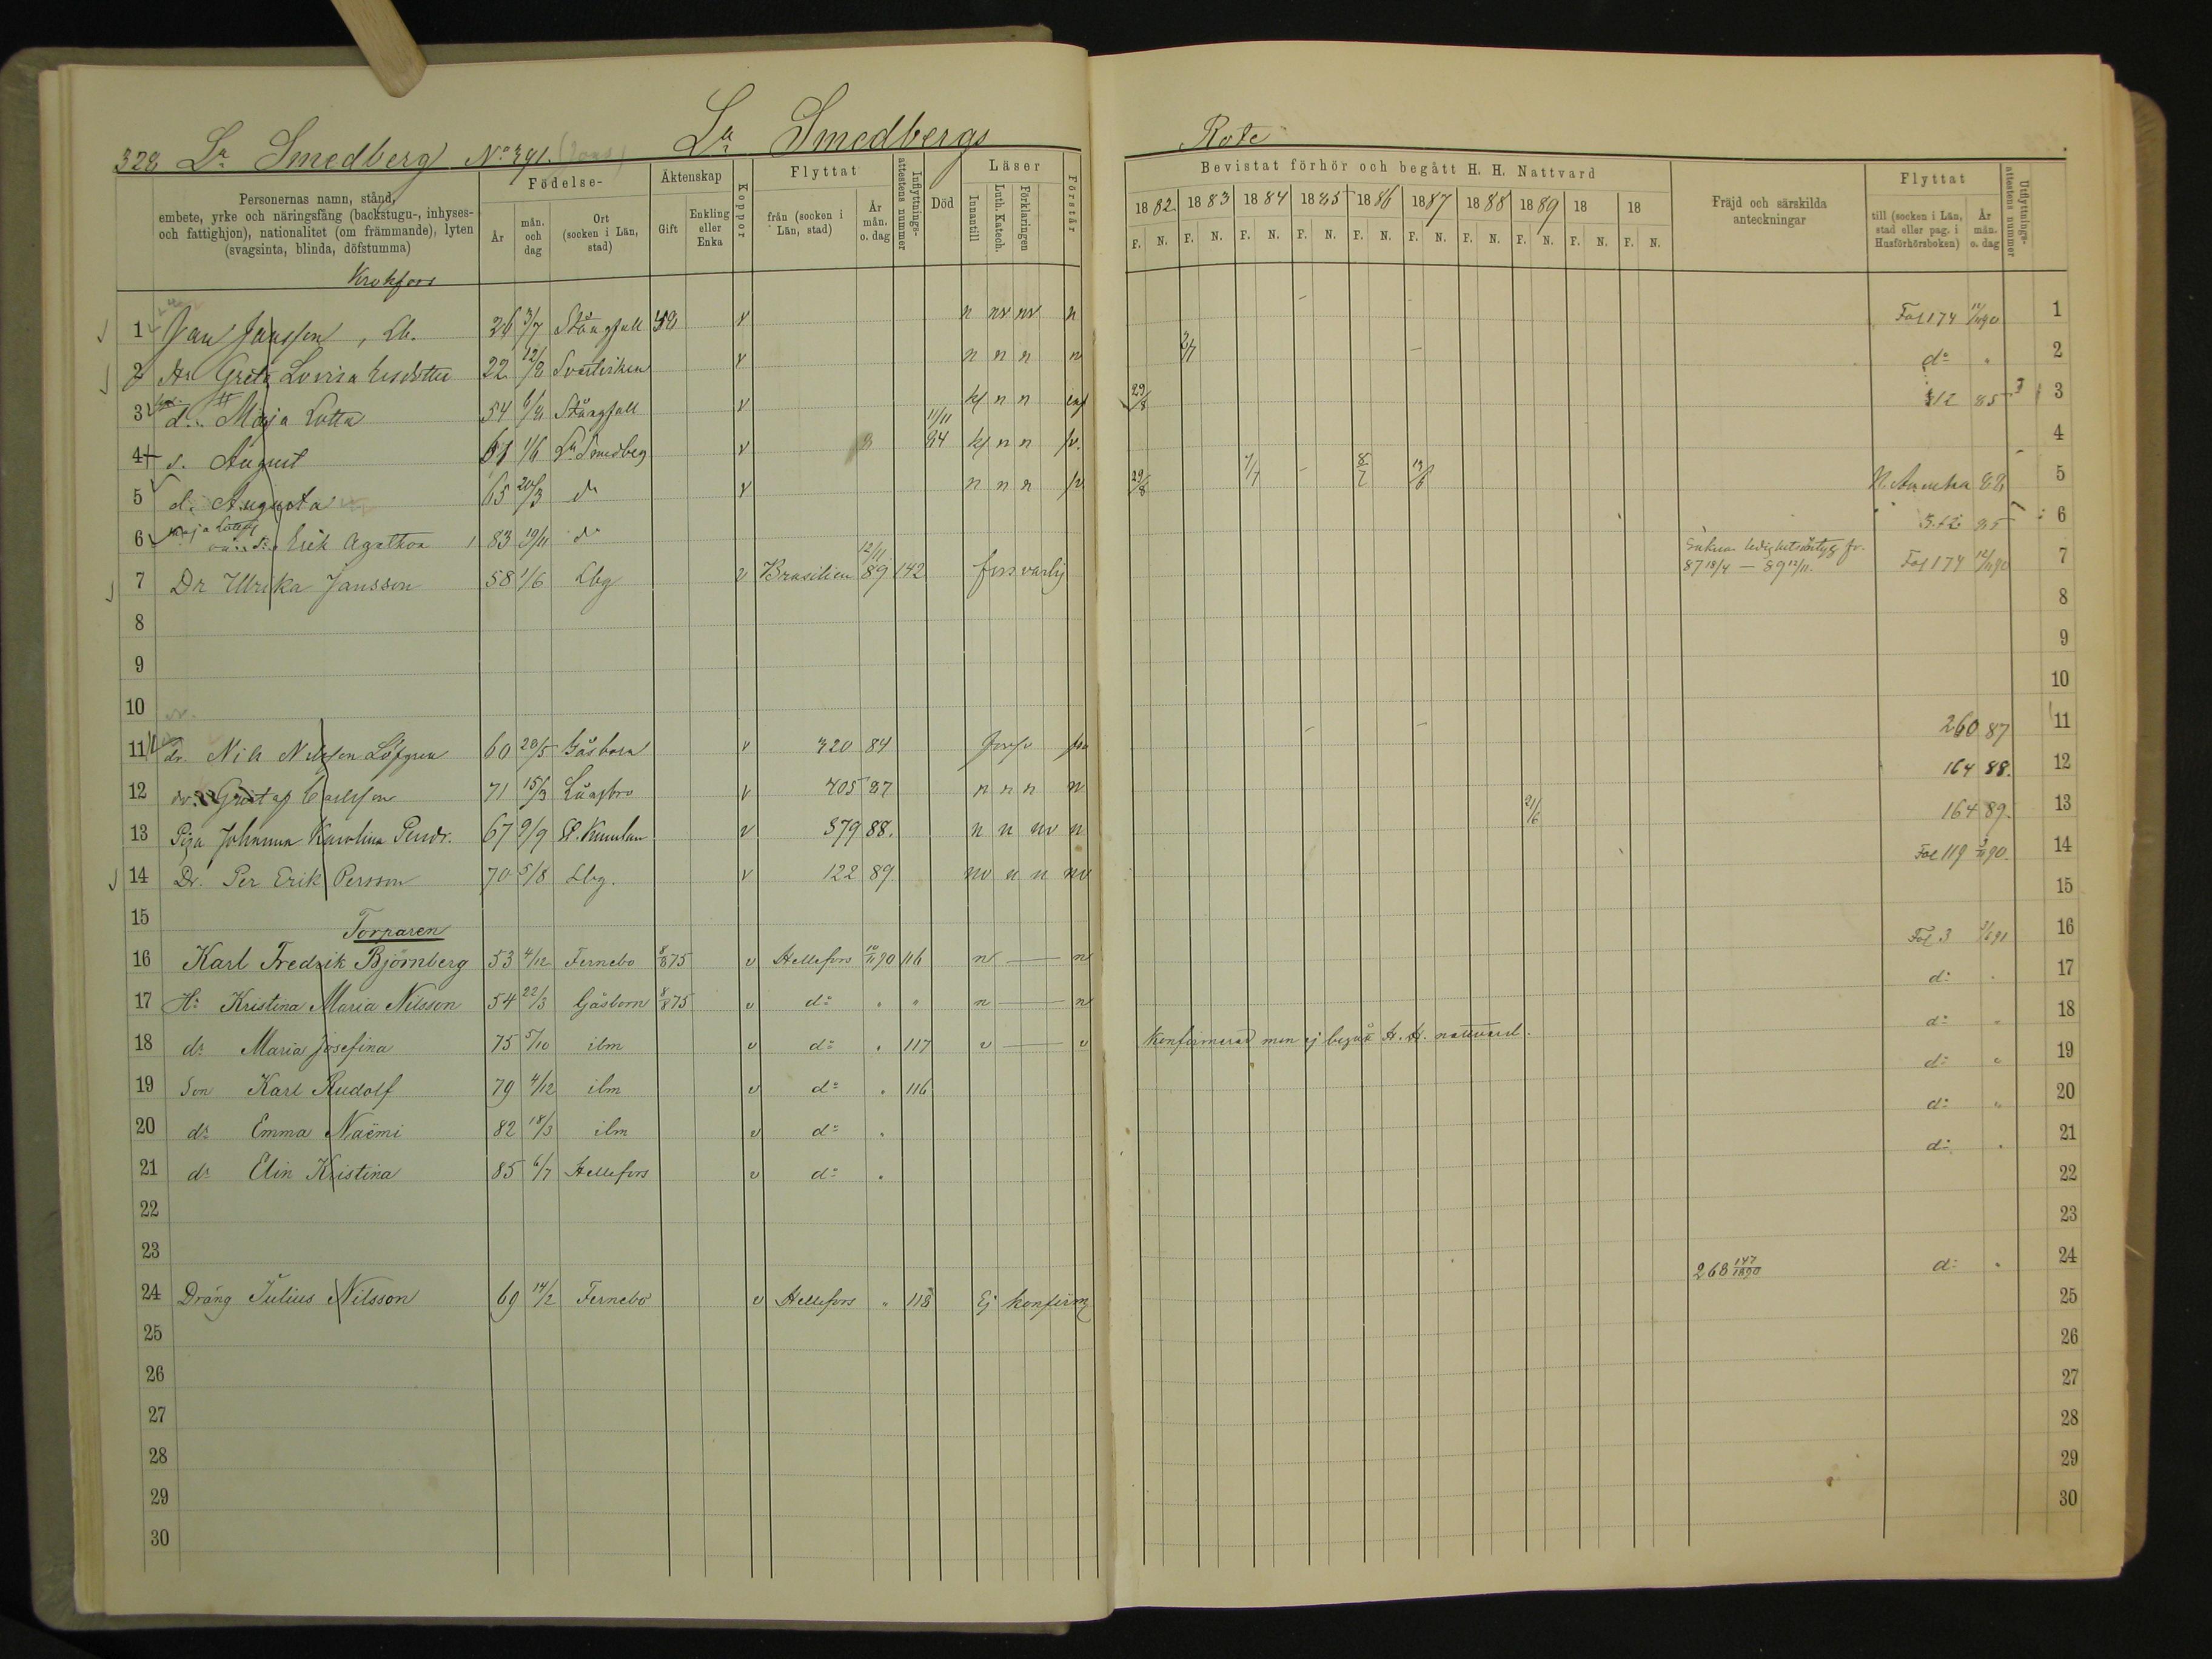 328 L:a Smedberg N:o 391.
L:a Smedbergs Rote
Personernas namn, stånd, embete, yrke och näringsfång (backstugu-, inhyses- och fattighjon), nationalitet (om främmande), lyten (svagsinta, blinda, döfstumma)
Födelse- År mån. och dag Ort (socken i Län, stad)
Äktenskap Gift Enkling eller Enka
Koppor
Flyttat från (socken i Län, stad) År mån. o. dag
Inflyttnings-attestens nummer
Död
Läser Innantill Luth. Katech. Förklaringen
Förstår
Bevistat förhör och begått H. H. Nattvard
1882 1883 1884 1885 1886 1887 1888 1889 18 18
F. N. F. N. F. N. F. N. F. N. F. N. F. N. F. N. F. N. F. N.
Fräjd och särskilda anteckningar
Flyttat till (socken i Län, stad eller pag. i Husförhörsboken) År mån. o. dag
Utflyttnings-attestens nummer
Krokfors
1 Jan Jansson, Lb. 26 3/7 Stångfall 50 v n nv nv n Fol 174 1
2 Hu Greta Lovisa 22 12/8 v n n n n 2/7 d:o 2
3 d. Maja Lotta 54 Stångfall v n n 29/8 312 85 3
4 s. August 61 1/6 L:a Smedberg v 11/11 84 n n 4
5 d. Augusta 65 20/3 d:o v n n n 29/8 7/7 8/7 19/6 N. Amerika 88 5
6 Maja Lottas Erik Agathon 83 19/11 d:o 312 85 6
7 Dr Ulrika Jansson 58 1/6 Lbg v Brasilien 12/11 89 142 försvarlig Saknar ledighetsbetyg fr. 87 18/4 — 89 12/11. Fol 174 7
8 8
9 9
10 10
11 dr. Nils Nilsson Löfgren 60 28/5 Gåsborn v 320 84 260 87 11
12 dr. Gustaf Carlsson 71 15/3 v 405 87 n n n n 164 88. 12
13 Piga Johanna Karolina 67 9/9 v 379 88. n n nv n 21/6 164 89. 13
14 Dr. Per Erik Persson 70 5/8 Lbg. v 122 89 nv n n nv Fol 119 90. 14
15 15
Torparen
16 Karl Fredrik Björnberg 53 4/12 Fernebo 8/8 75 v Hellefors 10/11 90 116 n — n Fol 3 16
17 Hu Kristina Maria Nilsson 54 22/3 Gåsborn 8/8 75 v d:o " " n — n d:o " 17
18 dr Maria Josefina 75 5/10 ibm v d:o " 117 v — v Konfirmerad men ej begått H. H. nattvard. d:o " 18
19 Son Karl Rudolf 79 4/12 ibm v d:o " 116 d:o " 19
20 dr Emma Naëmi 82 18/3 ibm v d:o " d:o " 20
21 dr Elin Kristina 85 6/7 Hellefors v d:o " d:o " 21
22 22
23 23
24 Dräng Julius Nilsson 69 14/2 Fernebo v Hellefors " 118 Ej konfirm 268 147/1890 d:o " 24
25 25
26 26
27 27
28 28
29 29
30 30